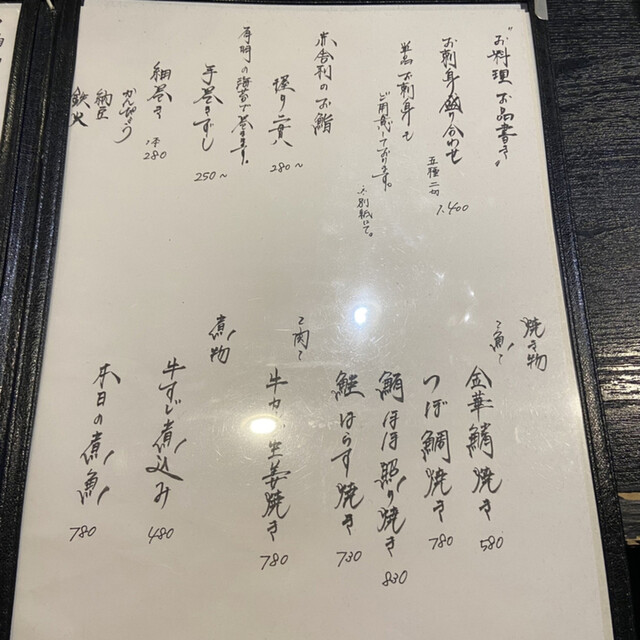 "お料理 お品書き"
お刺身盛り合わせ
五種二切
1.400
単品お刺身も
ご用意いたしております。
別紙にて。
赤舎利のお鮨
握り二貫
280~
有明の海苔で巻きます。
手巻きずし
250~
細巻き
1本
280
かんぴょう
納豆
鉄火
焼き物
~魚~
金華鯖焼き
580
つぼ鯛焼き
780
鮪ほほ照り焼き
830
鮭はらす焼き
730
~肉~
牛カルビ生姜焼き
780
煮物
牛すじ煮込み
480
本日の煮魚
780